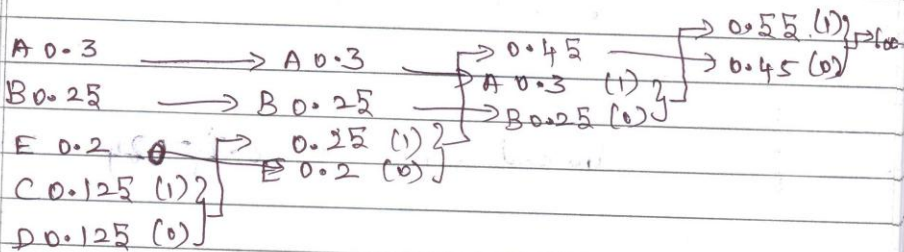 A 0.3 → A 0.3 → 0.45 → 0.55 (1)
B 0.25 → B 0.25 → A 0.3 (1) → 0.45 (0)
E 0.2 → 0.25 (1) → B 0.25 (0)
C 0.125 (1) E 0.2 (0)
D 0.125 (0)